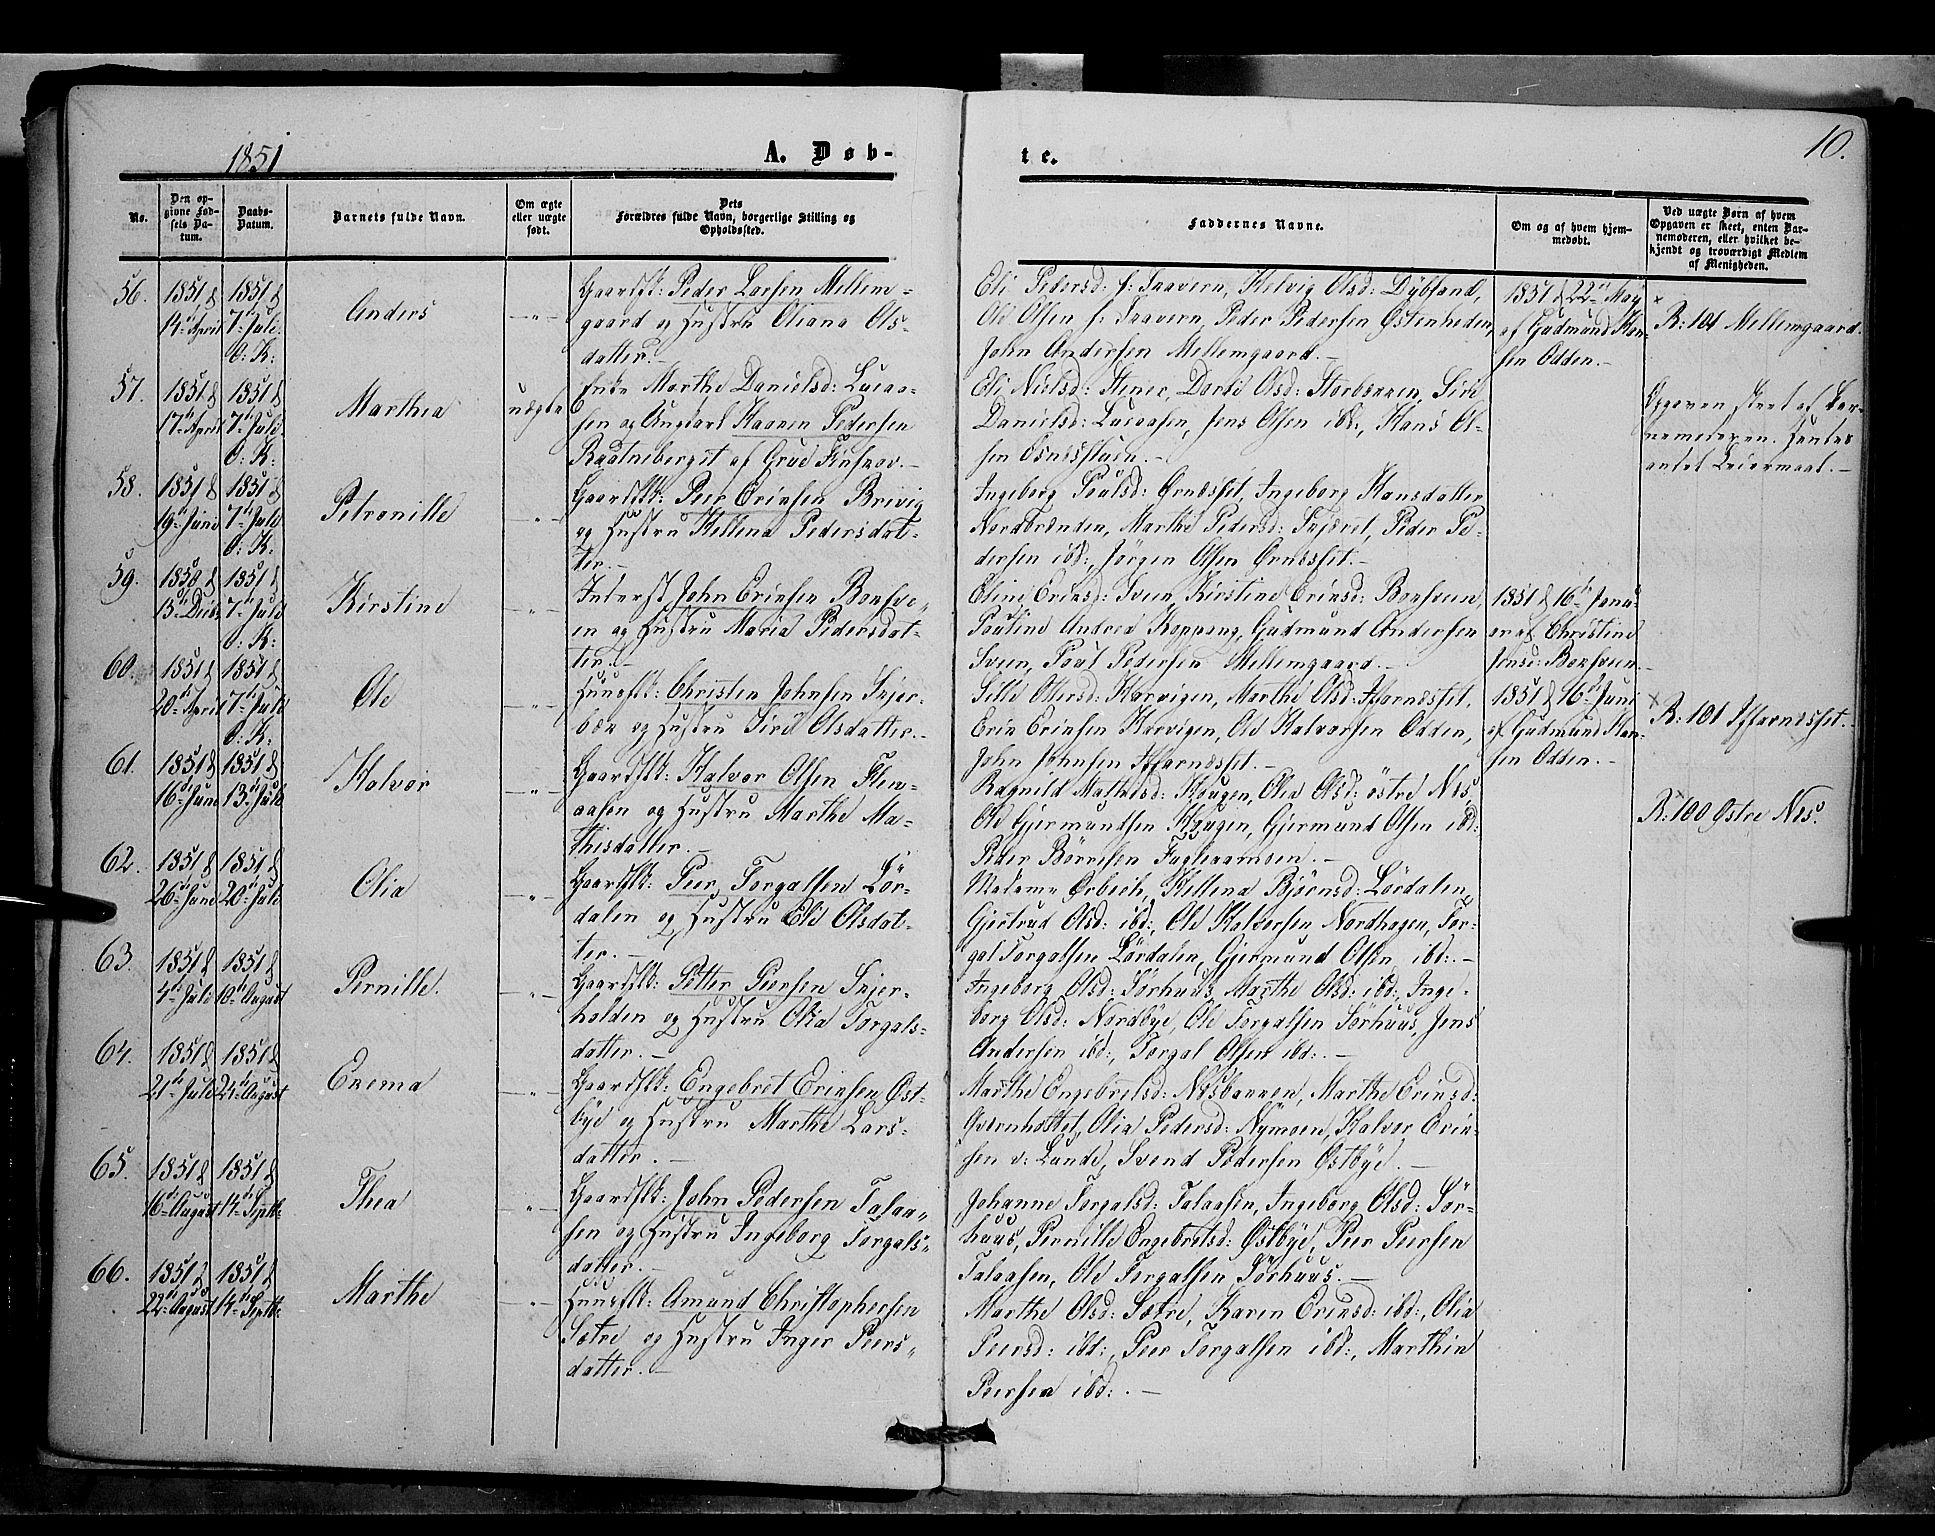 1851
A. Døb-
te.
10.
No.
Den op-
givne Fød-
sels Da-
tum.
Daabs-
Datum.
Barnets fulde Navn.
Om ægte
eller uægte
født.
Dets
Forældres fulde Navn, borgerlige Stilling og
Opholdssted.
Faddernes Navne.
Om og af hvem hjem-
medøbt.
Ved uægte Børn af hvem
Opgaven er skeet, enten Bar-
nemoderen, eller hvilket be-
kjendt og troværdigt Medlem
af Menigheden.
56.
1851 d
14de April
1851 d
7de Juli
O: K:
Anders
—"—
Gaardsk: Peder Larsen Mellem-
gaard og Hustru Oliana Ols-
datter.—
Eli Pedersd: s: Taavern, Helvig Olsd: Dybsand,
Ole Olsen s: Taavern, Peder Pedersen Østenheden,
John Andersen Mellemgaard.—
1851 d 22de May
af Gudmund Han-
sen Odden.—
R: 101 Mellemgaard.
57.
1851 d
17de April
1851 d
7de Juli
O: K:
Marthea
uægte
Enke Marthe Danielsd: Lucaa-
sen og Ungkarl Haaven Pedersen
af Grue Finskov.—
Eli Nielsd: Stener, Dorte Olsd: Storbækken, Siri
Danielsd: Lucaasen, Jens Olsen ibd:, Hans Ol-
sen Osnesstuen.—
Opgaven skeet af Bar-
nemoderen. Hendes
andet Leiermaal.—
58.
1851 d
19de Juni
1851 d
7de Juli
O: K:
Petronille
—"—
Gaardsk: Peer Eriksen Brivig
og Hustru Hellena Pedersdat-
ter.—
Ingeborg Poulsd: Ørnæsset, Ingeborg Hansdatter
Nordbrænden, Marthe Pedersd: Skjæret, Peder Pe-
dersen ibd:, Jørgen Olsen Ørnæsset.—
59.
1850 d
13de Decbr
1851 d
7de Juli
O: K:
Kirstine
—"—
Inderst John Eriksen Bersve-
en og Hustru Maria Pedersdat-
ter.—
Eline Eriksd: Sveen, Kirstine Eriksd: Bersveen,
Pouline Andrea Koppang, Gudmund Andersen
Sveen, Poul Pedersen Mellemgaard.—
1851 d 16de Janu-
ar af Christine
Jensd: Bersveen.—
60.
1851 d
20de April
1851 d
7de Juli
O: K:
Ole
—"—
Huussk: Christen Johnsen Skjer-
bæk og Hustru Siri Olsdatter.—
Sille Olersd: Harvigen, Marthe Olsd: Hornæsset,
Erik Eriksen Harvigen, Ole Halvorsen Odden,
John Johnsen Hornæsset.—
1851 d 16de Juni
af Gudmund Han-
sen Odden.—
R: 101 Hornæsset.
61.
1851 d
16de Juni
1851 d
13de Juli
Halvor
—"—
Gaardsk: Halvor Olsen Flen-
aasen og Hustru Marthe Ma-
thisdatter.—
Ragnild Mathisd: Haugen, Olia Olsd: østre Næs,
Ole Gjermundsen Haugen, Gjermund Olsen ibd:
Peder Børresen Fagliaamoen.—
R: 100 Østre Næs.
62.
1851 d
26de Juni
1851 d
20de Juli
Olia
—"—
Gaardsk: Peer Torgalsen Lør-
dalen og Hustru Eli Olsdat-
ter.—
Madame Ørbech, Hellena Bjørnsd: Lørdalen,
Gjertrud Olsd: ibd:, Ole Halvorsen Nordhagen, Tor-
gal Torgalsen Lørdalen, Gjermund Olsen ibd:.—
63.
1851 d
4de Juli
1851 d
10de August
Pernille.
—"—
Gaardsk: Petter Peersen Skjer-
holden og Hustru Olia Torgals-
datter.—
Ingeborg Olsd: Sørhuus, Marthe Olsd: ibd:, Inge-
borg Olsd: Nordbye, Ole Torgalsen Sørhuus, Jens
Andersen ibd:, Torgal Olsen ibd:.—
64.
1851 d
21de Juli
1851 d
24de August
Enema
—"—
Gaardsk: Engebret Eriksen Øst-
bye og Hustru Marthe Lars-
datter.—
Marthe Engebretsd: Næsbakken, Marthe Eriksd:
Gværnholtet, Olia Pedersd: Nymoen, Halvor Erik-
sen v: Lunde, Svend Pedersen Østbye.—
65.
1851 d
16de August
1851 d
14de Septb:
Thea
—"—
Gaardsk: John Pedersen Talaa-
sen og Hustru Ingeborg Torgals-
datter.—
Johanne Torgalsd: Talaasen, Ingeborg Olsd: Sør-
huus, Pernille Engebretsd: Østbye, Peer Peersen
Talaasen, Ole Torgalsen Sørhuus.—
66.
1851 d
22de August
1851 d
14de Septb:
Marthe
—"—
Huussk: Amund Christophersen
Sætre og Hustru Inger Peers-
datter.—
Marthe Olsd: Sætre, Karen Eriksd: ibd:, Olia
Peersd: ibd:, Peer Torgalsen ibd:, Marthin
Peersen ibd:.—